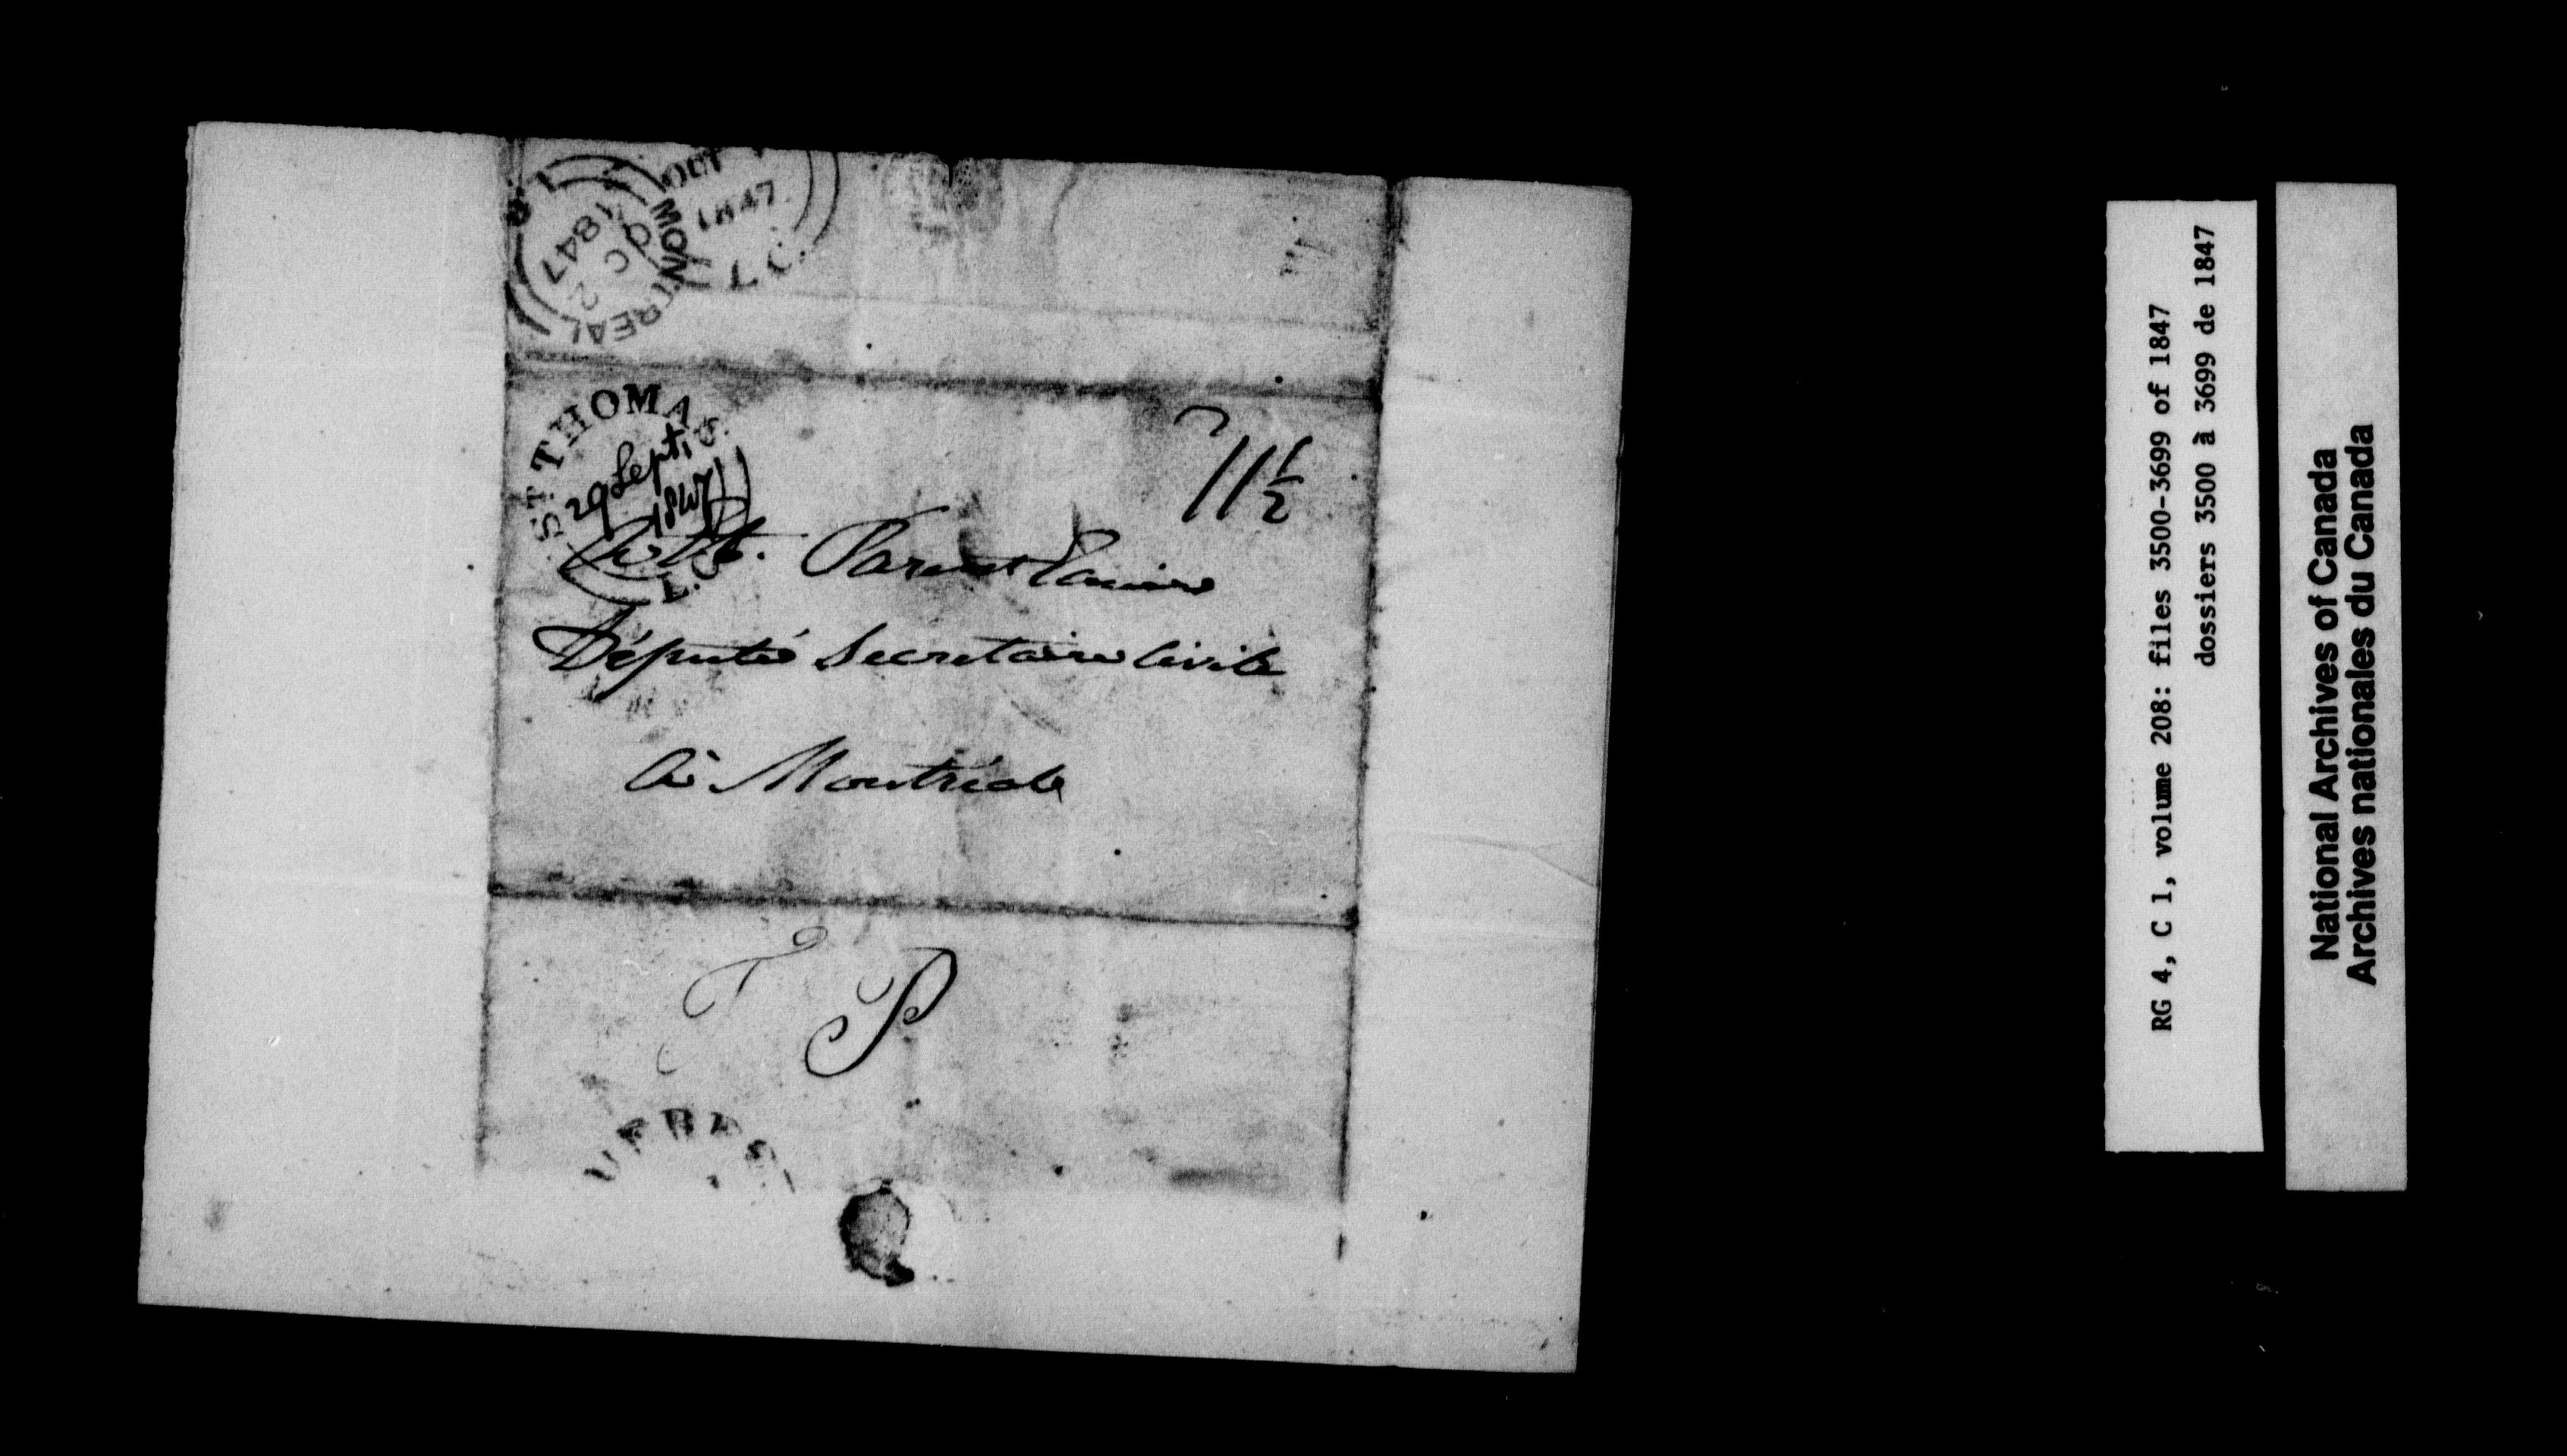 OCT
1847
L.C.
MONTREAL
OC 2
1847
L.C
ST THOMAS
29 Septr
1847
L.C
11½
Parent Ecuier
Député Secretaire Civile
à Montréale
P
RG 4, C 1, volume 208: files 3500-3699 of 1847
dossiers 3500 à 3699 de 1847
National Archives of Canada
Archives nationales du Canada